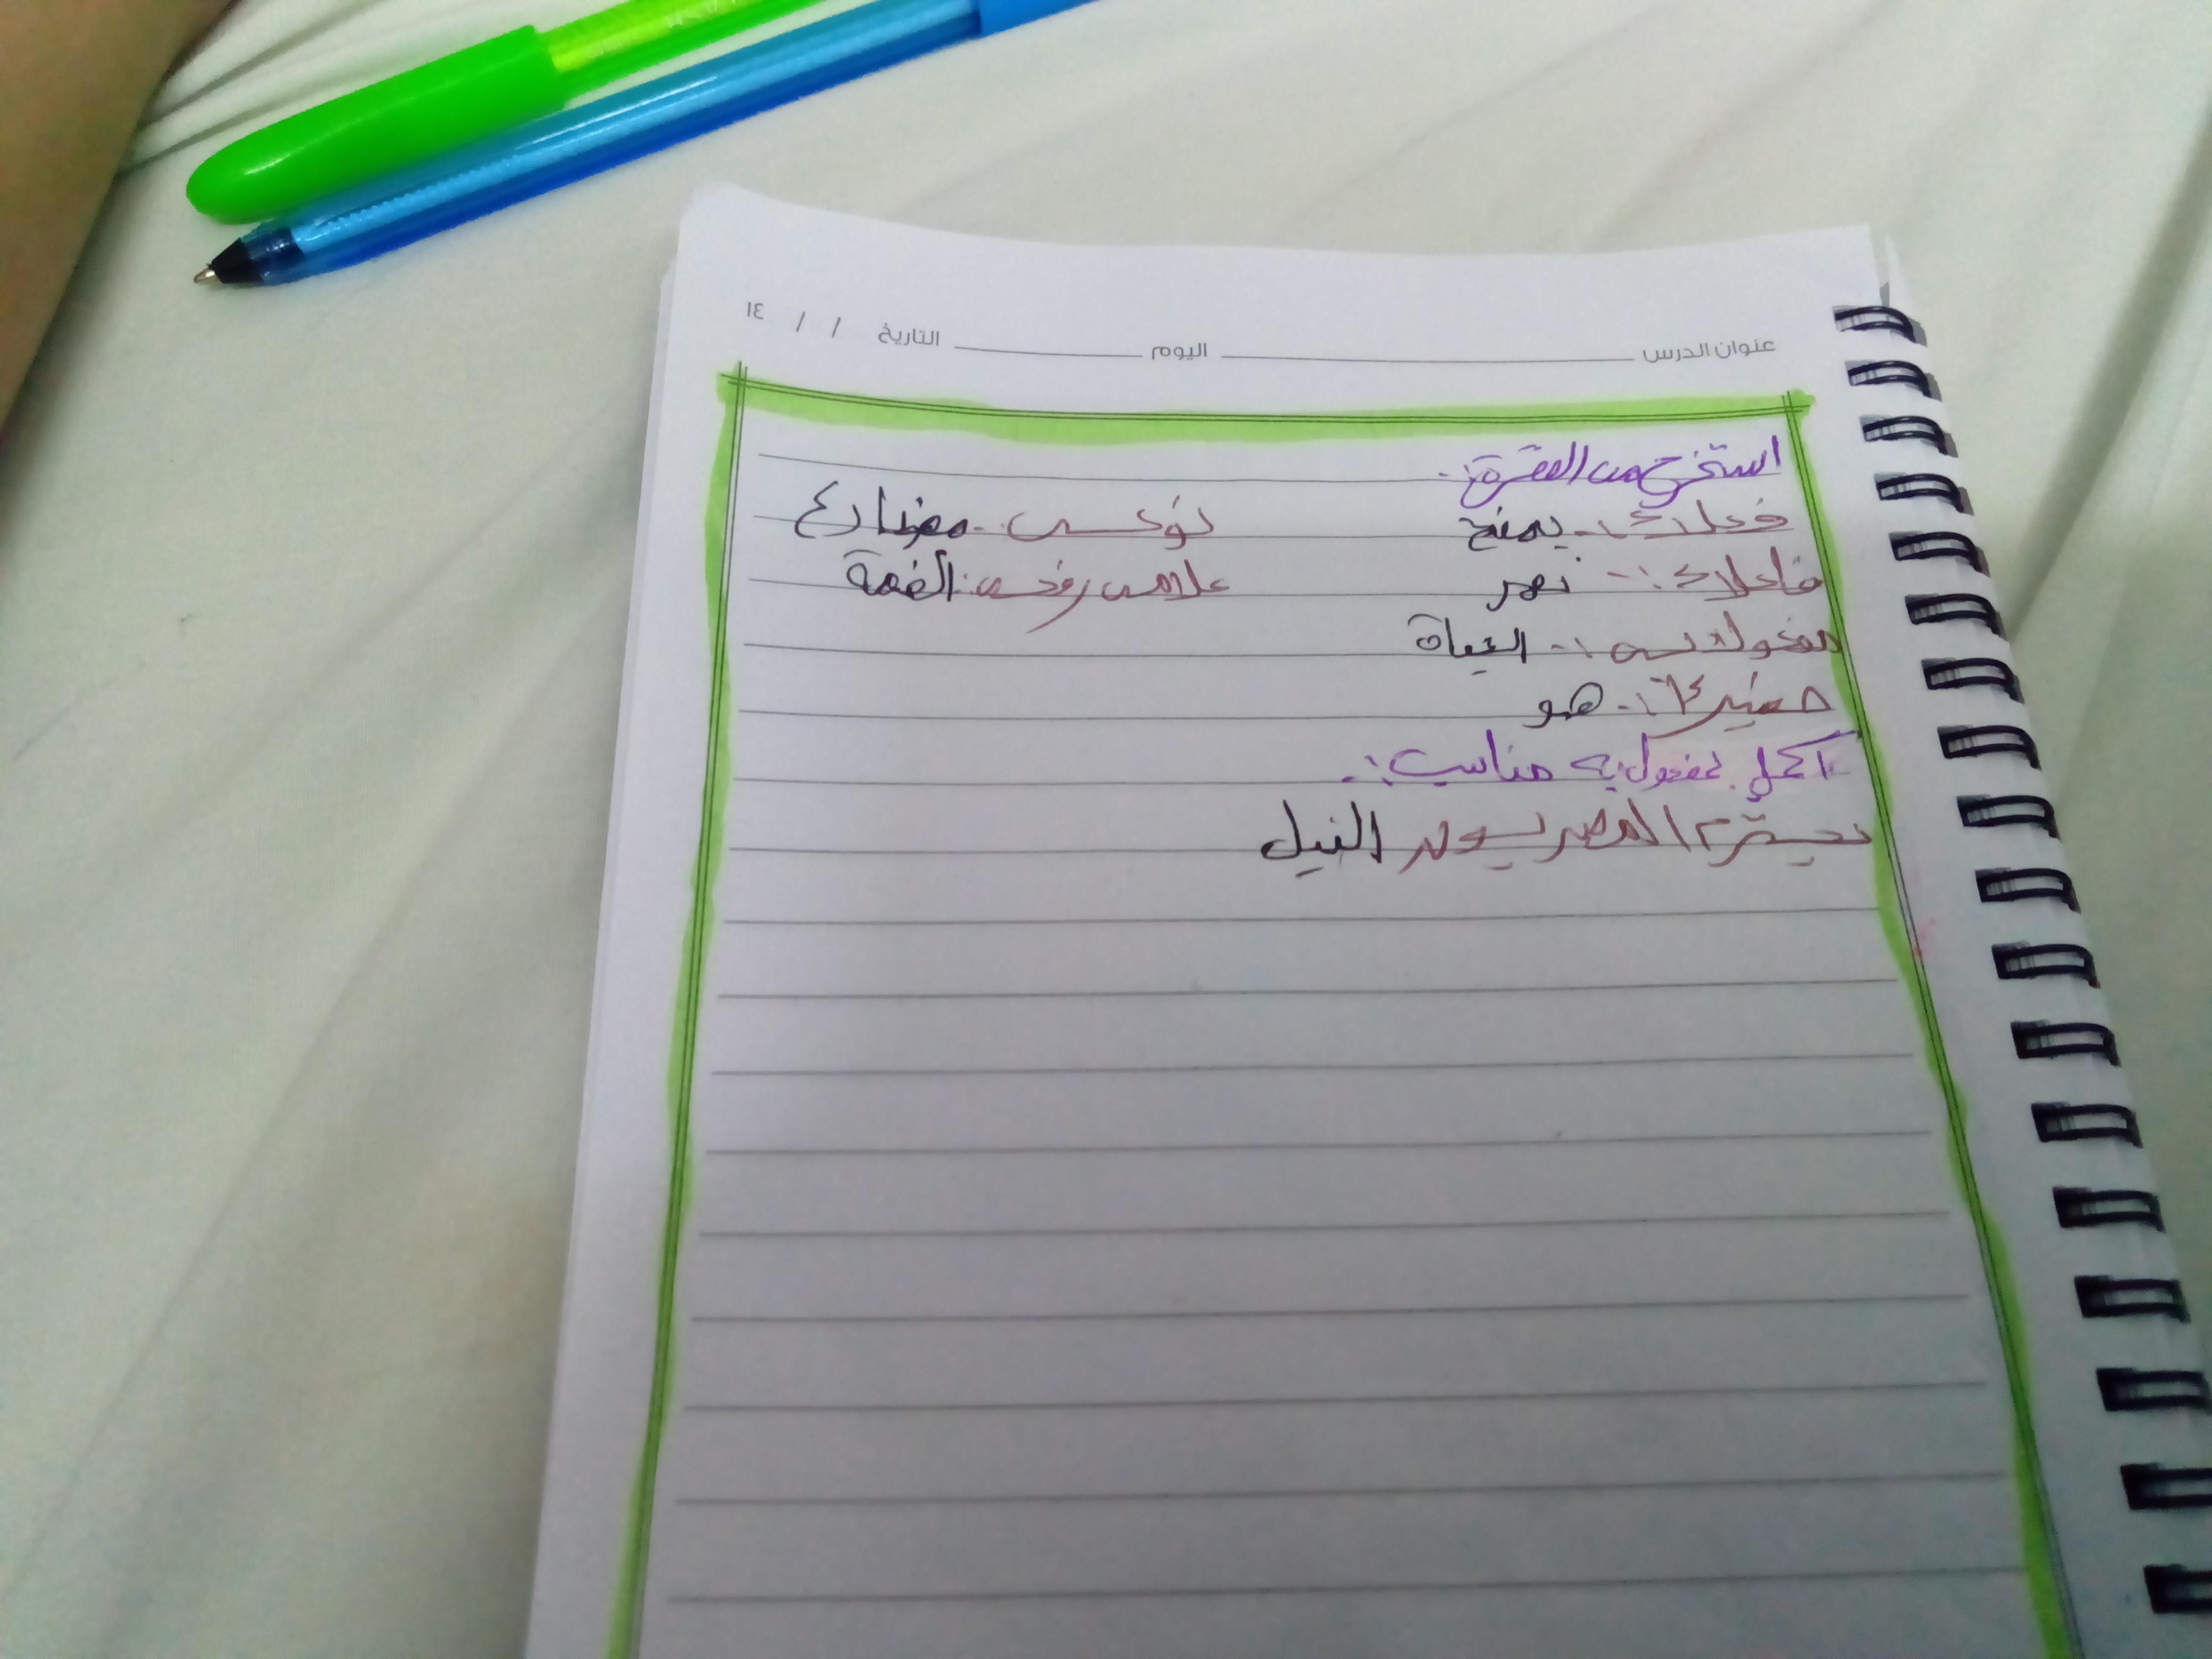 عنوان الدرس اليوم التاريخ / / ١٤
استخرج من الفقرة:-
فعلاً:- يمنح نوعه:- مضارع
فاعلاً:- نهر علامة رفعه: الضمة
مفعولاً به:- الحياة
ضميراً:- هو
أكمل بمفعول به مناسب:-
يحترم المصريون النيل